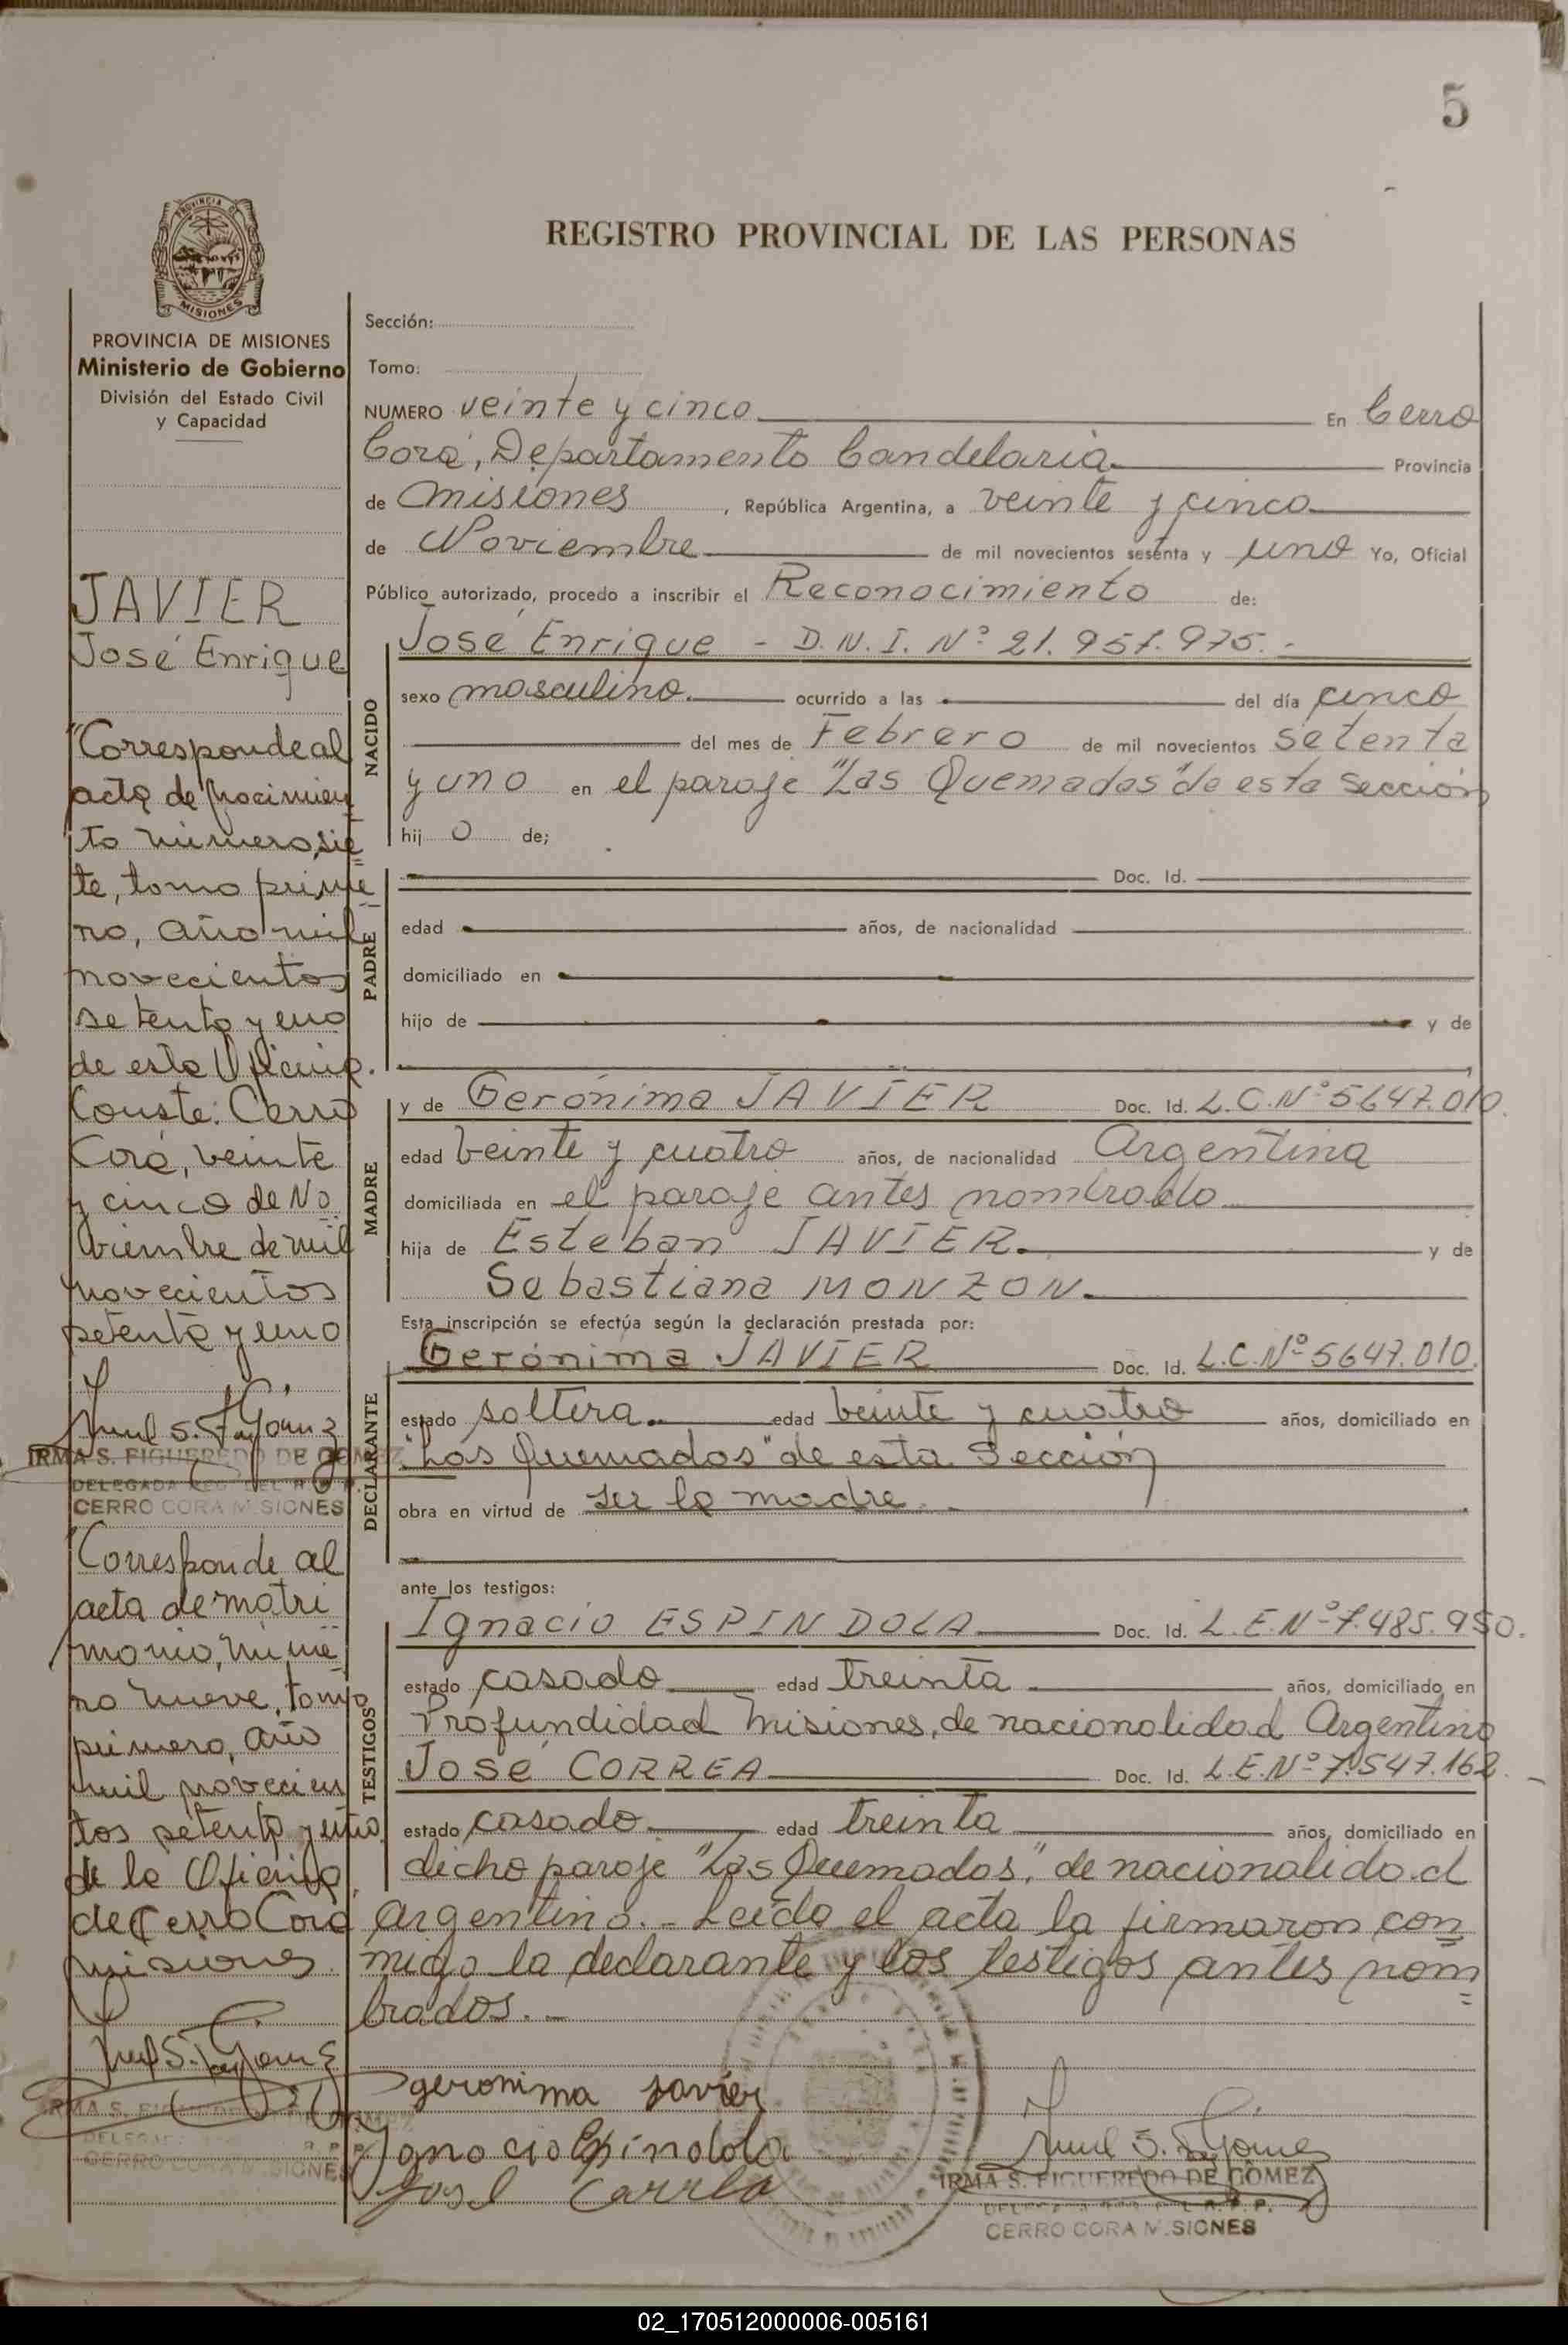 5
PROVINCIA DE
MISIONES
PROVINCIA DE MISIONES
Ministerio de Gobierno
División del Estado Civil
y Capacidad
JAVIER
José Enrique
"Corresponde al
acta de Nacimien
to número sie
te, tomo prime
ro, año mil
novecientos
setenta y uno
de esta Oficina.
Conste: Cerro
Corá, veinte
y cinco de No
viembre de mil
novecientos
setenta y uno
IRMA S. FIGUEREDO DE GOMEZ
DELEGADA REG DEL R. P. P.
CERRO CORA MISIONES
"Corresponde al
acta de matri
monio, núme
ro nueve, tomo
primero, año
mil novecien
tos setenta y uno
de la Oficina
de Cerro Corá
Misiones.
IRMA S.
CERRO CORA MISIONES
REGISTRO PROVINCIAL DE LAS PERSONAS
Sección:
Tomo:
NUMERO veinte y cinco En Cerro
Corá, Departamento Candelaria Provincia
de Misiones, República Argentina, a veinte y cinco
de Noviembre de mil novecientos sesenta y uno Yo, Oficial
Público autorizado, procedo a inscribir el Reconocimiento de:
NACIDO
José Enrique - D.N.I. Nº 21.951.975.-
sexo masculino. ocurrido a las del día cinco
del mes de Febrero de mil novecientos setenta
y uno en el paraje "Las Quemadas" de esta Sección
hij o de;
PADRE
Doc. Id.
edad años, de nacionalidad
domiciliado en
hijo de y de
MADRE
y de Gerónima JAVIER Doc. Id. L.C. Nº 5647.010.
edad veinte y cuatro años, de nacionalidad Argentina
domiciliada en el paraje antes nombrado
hija de Esteban JAVIER. y de
Sebastiana MONZON.
Esta inscripción se efectúa según la declaración prestada por:
DECLARANTE
Gerónima JAVIER Doc. Id. L.C. Nº 5647.010.
estado soltera. edad veinte y cuatro años, domiciliado en
"Las Quemadas" de esta Sección
obra en virtud de ser la madre.-
ante los testigos:
TESTIGOS
Ignacio ESPINDOLA Doc. Id. L.E. Nº 7.485.950.
estado casado edad treinta años, domiciliado en
Profundidad Misiones, de nacionalidad Argentino
José CORREA Doc. Id. L.E. Nº 7.547.162.-
estado casado. edad treinta años, domiciliado en
dicho paraje "Las Quemadas," de nacionalidad
Argentino.- Leída el acta la firmaron con
migo la declarante y los testigos antes nom=
brados.-
geronima Javier
Ignacio Espindola
José Correa
IRMA S. FIGUEREDO DE GOMEZ
CERRO CORA MISIONES
02_170512000006-005161